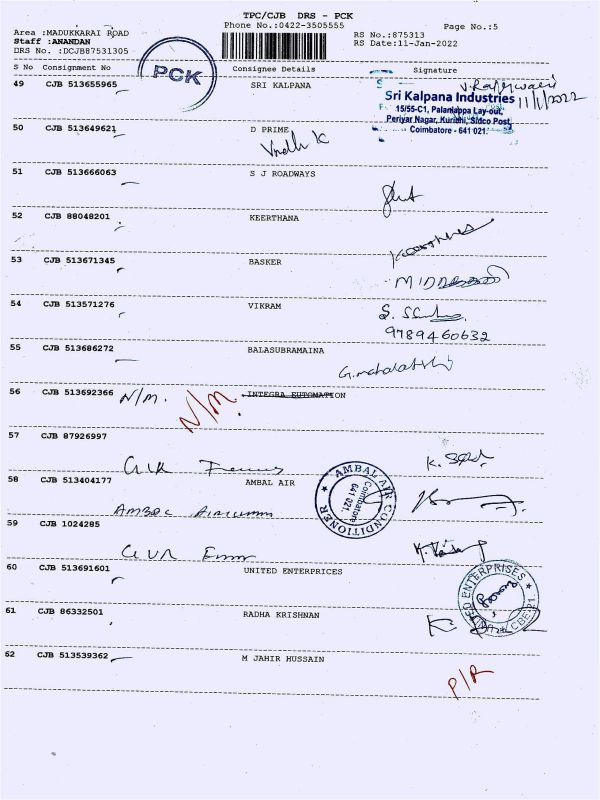 TPC/CJB DRS - PCK
Phone No.:0422-3505555
Page No.:5
Area :MADUKKARAI ROAD
Staff :ANANDAN
DRS No. :DCJB87531305
RS No.:875313
RS Date:11-Jan-2022
PCK
S No Consignment No Consignee Details Signature
49 CJB 513655965 SRI KALPANA
11/1/2022
Sri Kalpana Industries
15/55-C1, Palaniappa Lay-out,
Periyar Nagar, Kurichi, Sidco Post,
Coimbatore - 641 021.
50 CJB 513649621 D PRIME
51 CJB 513666063 S J ROADWAYS
52 CJB 88048201 KEERTHANA
53 CJB 513671345 BASKER
54 CJB 513571276 VIKRAM
9789460632
55 CJB 513686272 BALASUBRAMAINA
56 CJB 513692366 N/M. N/M. INTEGRA EUTOMATION
57 CJB 87926997
58 CJB 513404177 AMBAL AIR
AMBAL AIR CONDITIONER
Coimbatore
641 021.
59 CJB 1024285
60 CJB 513691601 UNITED ENTERPRICES
61 CJB 86332501 RADHA KRISHNAN
62 CJB 513539362 M JAHIR HUSSAIN
P/R